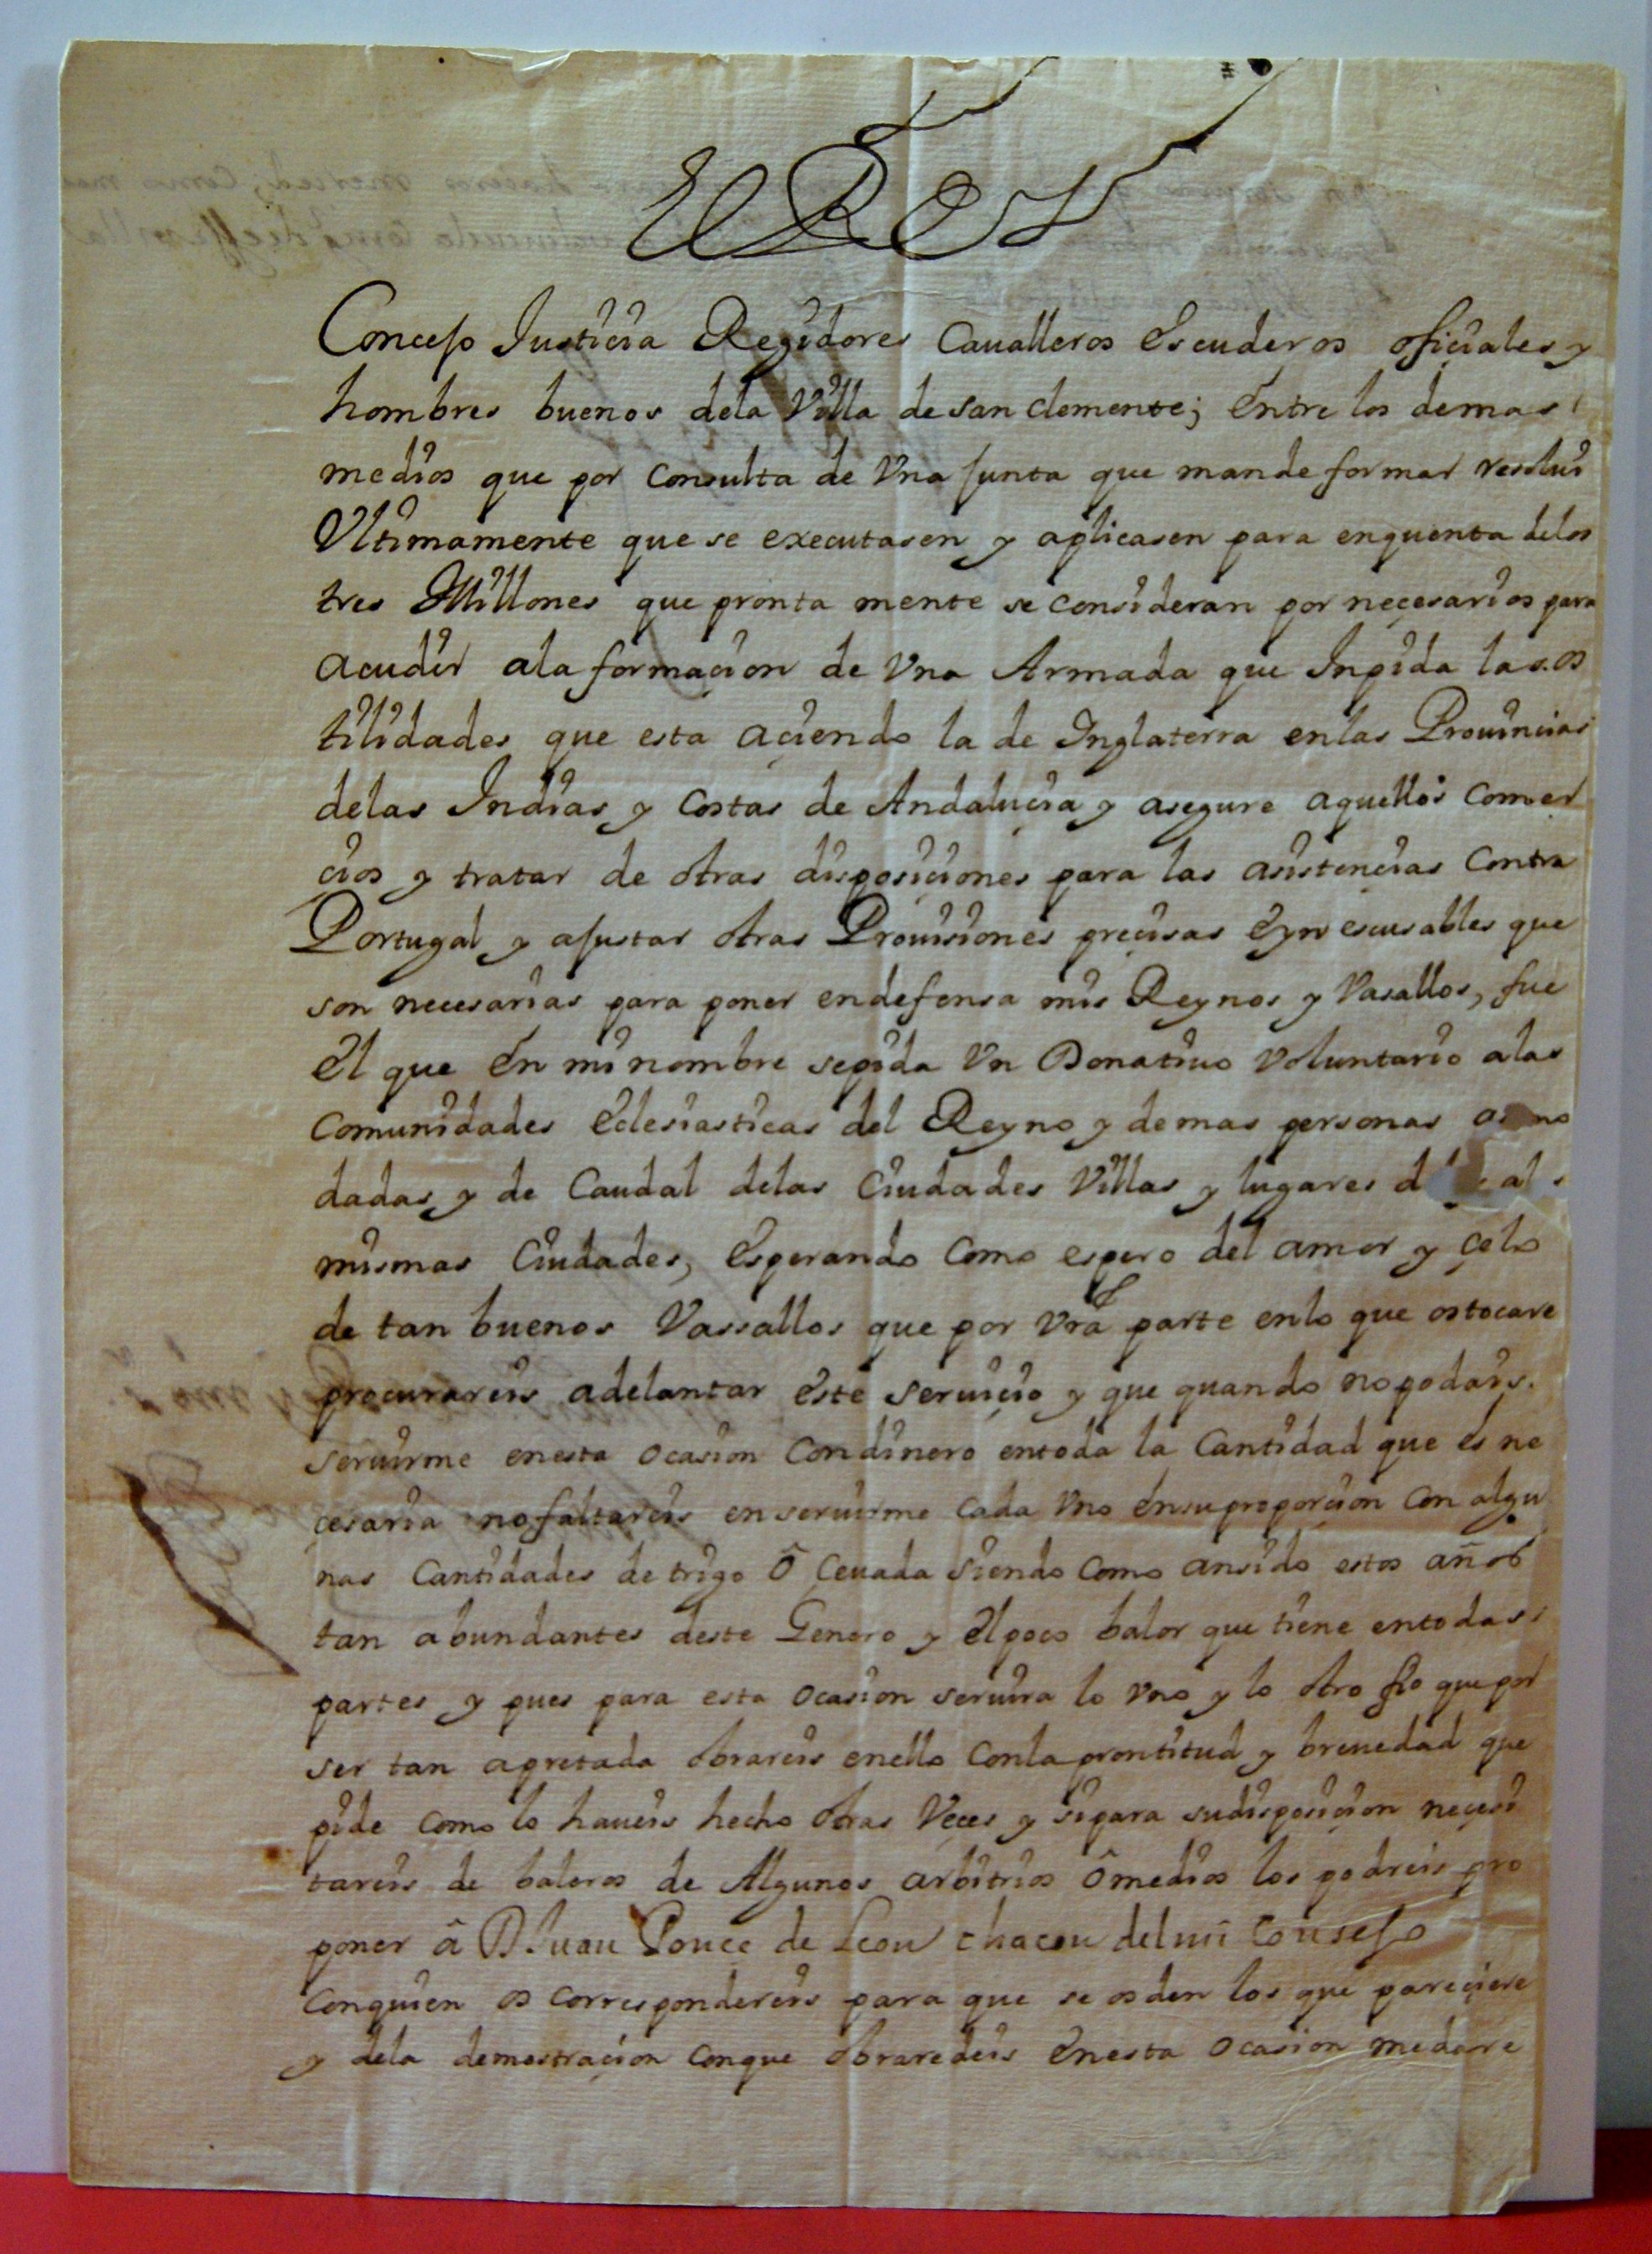 El Rey
Concejo Justicia Regidores Caualleros Escuderos ofiçiales y
hombres buenos dela Villa de San Clemente; Entre los demas
medios que por Consulta de Vna Junta que mande formar resolui
Vltimamente que se executasen y aplicasen para enquenta delos
tres Millones que pronta mente se Consideran por neçesarios para
acudir ala formaçion de Vna Armada que Inpida las os
tilidades que esta açiendo la de Inglaterra enlas Prouincias
delas Indias y Costas de Andaluçia y asegure aquellos Comer
çios y tratar de otras disposiçiones para las asistençias Contra
Portugal y ajustar otras Prouisiones preçisas Eynescusables que
son necesarias para poner endefensa mis Reynos y Vasallos, fue
El que En mi nombre sepida Vn Donatiuo Voluntario alas
Comunidades Eclesiasticas del Reyno y demas personas
dadas y de Caudal delas Ciudades Villas y lugares
mismas Ciudades, Esperando Como espero del amor y çelo
de tan buenos Vassallos que por Vra parte enlo que ostocare
procurareis adelantar Este seruiçio y que quando nopodais
seruirme enesta ocasion Condinero entoda la Cantidad que es ne
çesaria nofaltareis enseruirme Cada Vno Ensuproporçion Con algu
nas Cantidades de trigo Ô Çeuada siendo Como ansido estos años
tan abundantes deste Genero y Elpoco balor que tiene entodas
partes y pues para esta ocasion seruira lo Vno y lo otro fio quepor
ser tan apretada obrareis enello Conlaprontitud y breuedad que
pide Como lo haueis hecho otras Veçes y sipara sudisposiçion neçesi
tareis de baleros de Algunos arbitrios Ômedios los podreis pro
poner â D Juan Ponçe de Leon chacon delmi Consejo
Conquien os Correspondereis para que se osden los que pareçiere
y dela demostraçion Conque obraredeis Enesta ocasion medare